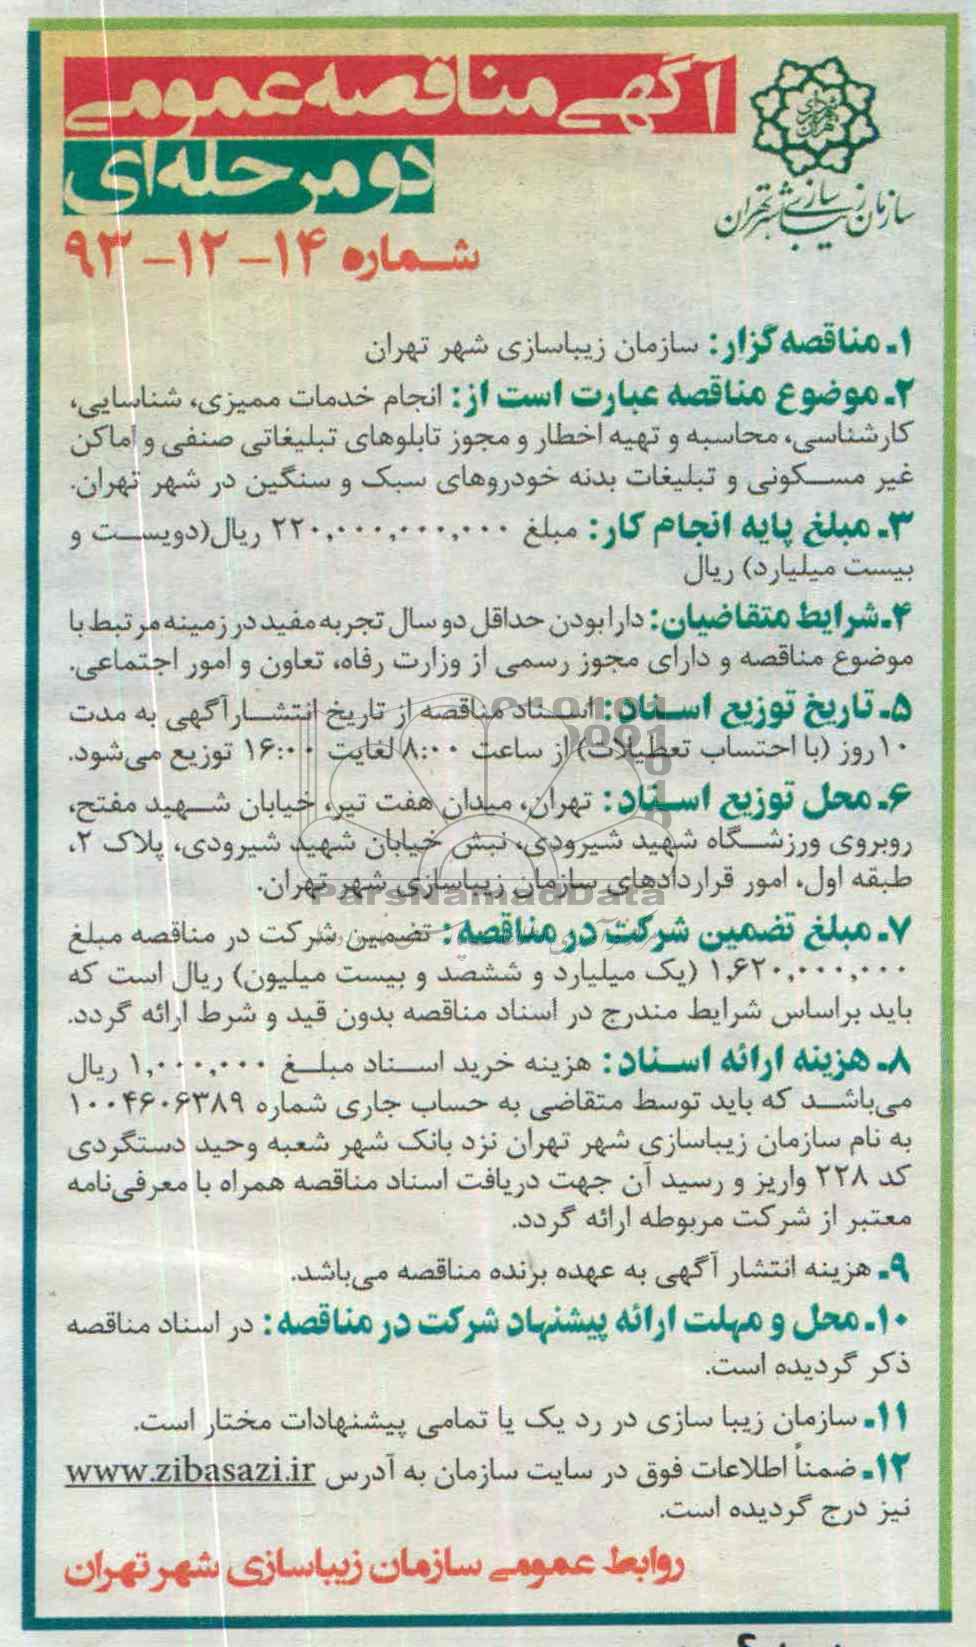 آگهی مناقصه عمومی
دو مرحله‌ای
سازمان زیباسازی شهر تهران
شماره ۱۴-۱۲-۹۳
۱ـ مناقصه‌گزار: سازمان زیباسازی شهر تهران
۲ـ موضوع مناقصه عبارت است از: انجام خدمات ممیزی، شناسایی،
کارشناسی، محاسبه و تهیه اخطار و مجوز تابلوهای تبلیغاتی صنفی و اماکن
غیر مسکونی و تبلیغات بدنه خودروهای سبک و سنگین در شهر تهران.
۳ـ مبلغ پایه انجام کار: مبلغ ۲۲۰,۰۰۰,۰۰۰,۰۰۰ ریال(دویست و
بیست میلیارد) ریال
۴ـ شرایط متقاضیان: دارا بودن حداقل دو سال تجربه مفید در زمینه مرتبط با
موضوع مناقصه و دارای مجوز رسمی از وزارت رفاه، تعاون و امور اجتماعی.
۵ـ تاریخ توزیع اسناد: اسناد مناقصه از تاریخ انتشار آگهی به مدت
۱۰ روز (با احتساب تعطیلات) از ساعت ۸:۰۰ لغایت ۱۶:۰۰ توزیع می‌شود.
۶ـ محل توزیع اسناد: تهران، میدان هفت تیر، خیابان شهید مفتح،
روبروی ورزشگاه شهید شیرودی، نبش خیابان شهید شیرودی، پلاک ۲،
طبقه اول، امور قراردادهای سازمان زیباسازی شهر تهران.
ParsNamadData
۷ـ مبلغ تضمین شرکت در مناقصه: تضمین شرکت در مناقصه مبلغ
۱,۶۲۰,۰۰۰,۰۰۰ (یک میلیارد و ششصد و بیست میلیون) ریال است که
باید براساس شرایط مندرج در اسناد مناقصه بدون قید و شرط ارائه گردد.
۸ـ هزینه ارائه اسناد: هزینه خرید اسناد مبلغ ۱,۰۰۰,۰۰۰ ریال
می‌باشد که باید توسط متقاضی به حساب جاری شماره ۱۰۰۴۶۰۶۳۸۹
به نام سازمان زیباسازی شهر تهران نزد بانک شهر شعبه وحید دستگردی
کد ۲۲۸ واریز و رسید آن جهت دریافت اسناد مناقصه همراه با معرفی‌نامه
معتبر از شرکت مربوطه ارائه گردد.
۹ـ هزینه انتشار آگهی به عهده برنده مناقصه می‌باشد.
۱۰ـ محل و مهلت ارائه پیشنهاد شرکت در مناقصه: در اسناد مناقصه
ذکر گردیده است.
۱۱ـ سازمان زیبا سازی در رد یک یا تمامی پیشنهادات مختار است.
۱۲ـ ضمناً اطلاعات فوق در سایت سازمان به آدرس www.zibasazi.ir
نیز درج گردیده است.
روابط عمومی سازمان زیباسازی شهر تهران